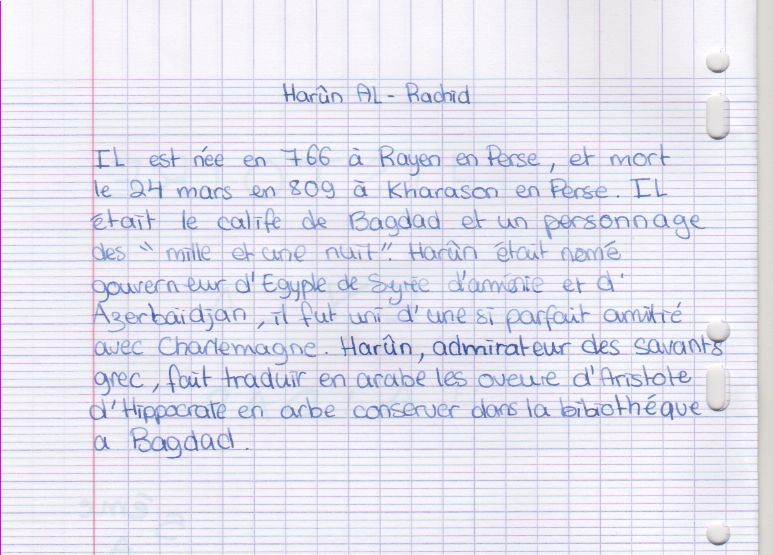 Harûn AL-Rachid
IL est née en 766 à Rayen en Perse, et mort
le 24 mars en 809 à Kharason en Perse. IL
était le calife de Bagdad et un personnage
des "mille et une nuit". Harûn était nomé
gouverneur d'Egyple de Syrie d'aménie et d'
Azerbaïdjan, il fut uni d'une si parfait amitié
avec Charlemagne. Harûn, admirateur des savants
grec, fait traduir en arabe les oveure d'Aristote
d'Hippocrate en arbe conserver dans la bibiothéque
a Bagdad.